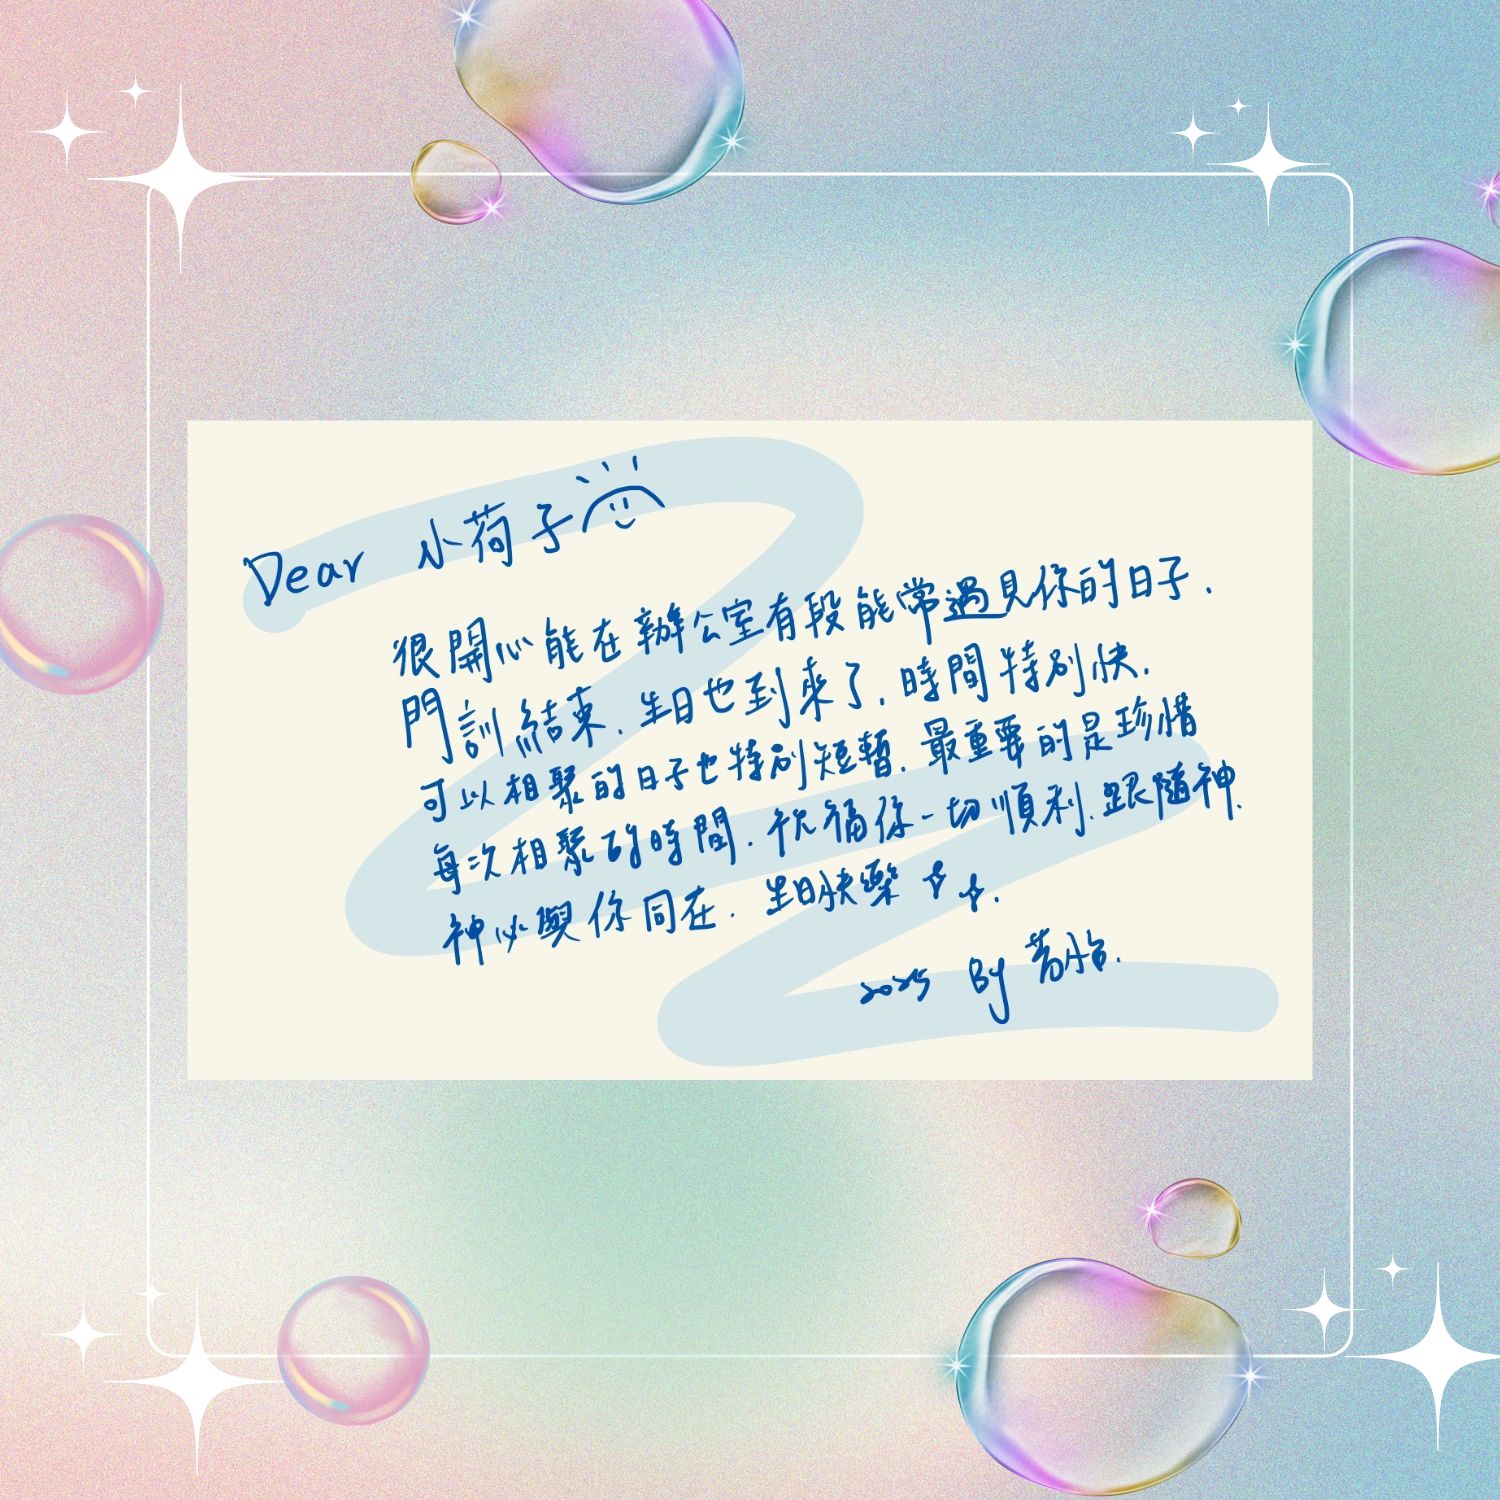 Dear 小荷子
很開心能在辦公室有段能常遇見你的日子.
門訓結束.生日也到來了.時間特別快.
可以相聚的日子也特別短暫.最重要的是珍惜
每次相聚的時間.祝福你一切順利.跟隨神.
神必與你同在.生日快樂
2025 By